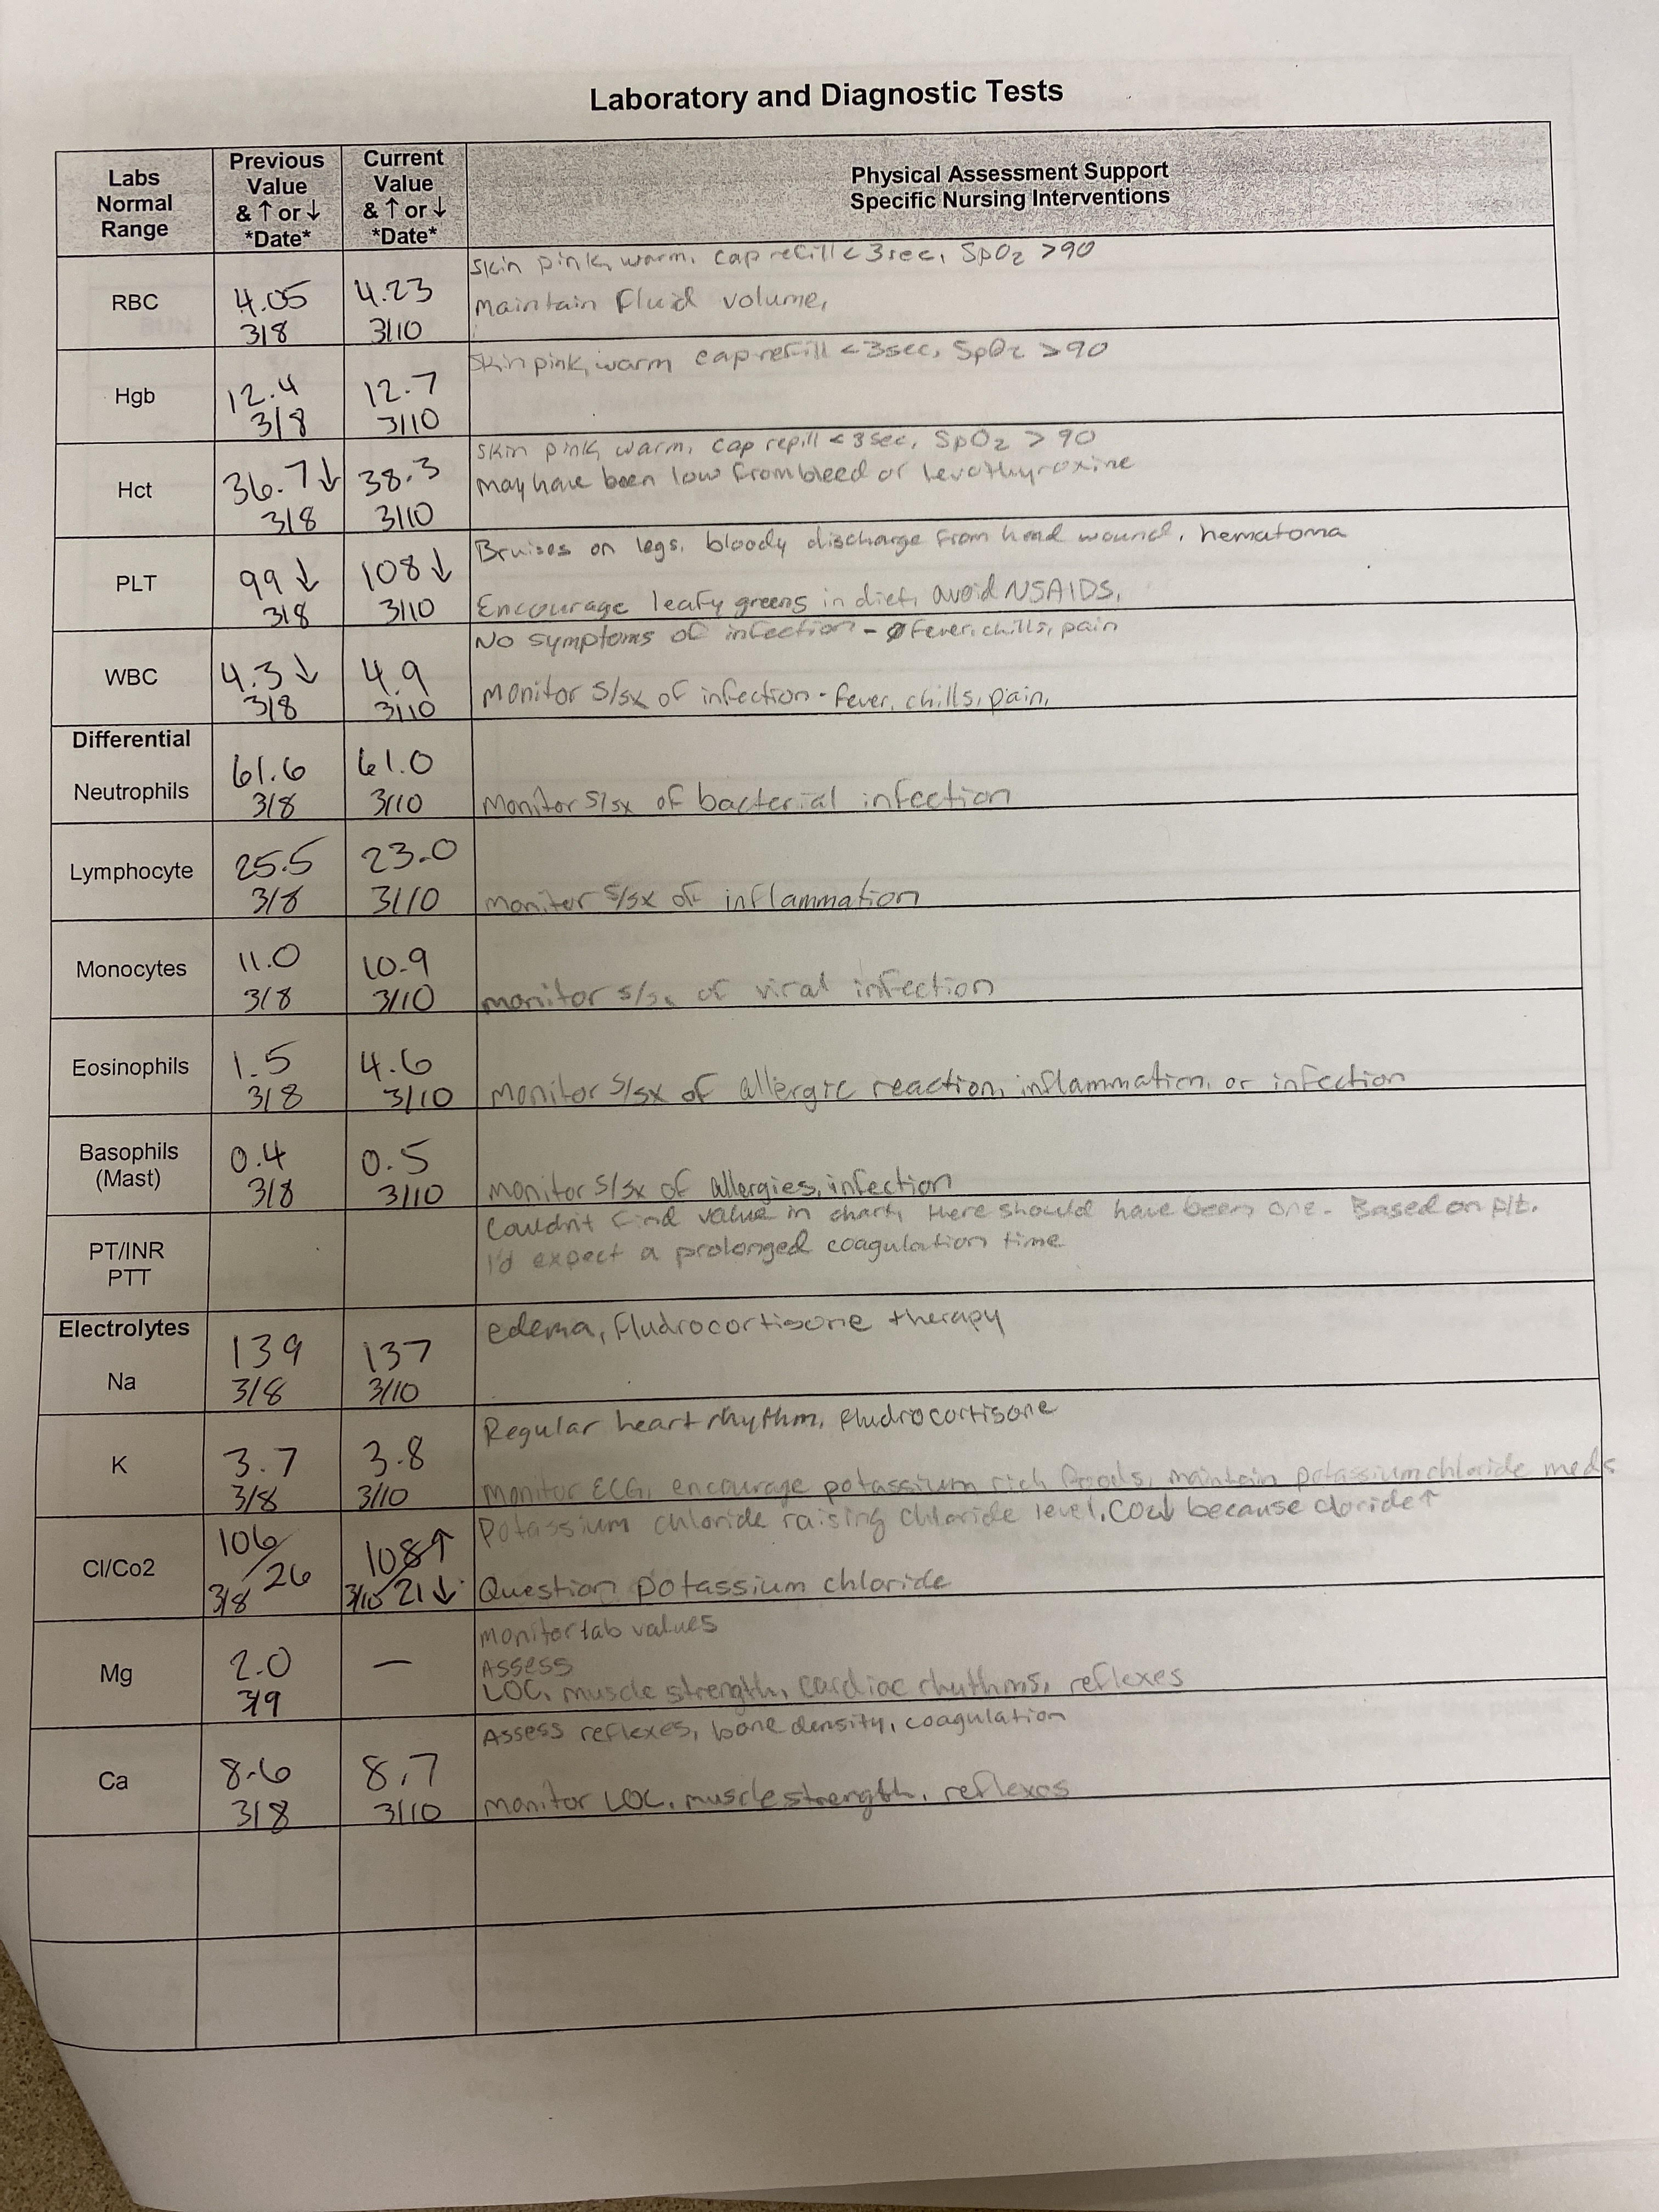 Laboratory and Diagnostic Tests
Labs
Normal
Range
Previous
Value
& ↑ or ↓
*Date*
Current
Value
& ↑ or ↓
*Date*
Physical Assessment Support
Specific Nursing Interventions
RBC
4.05
3/8
4.23
3/10
Skin pink, warm, cap refill < 3sec, SpO2 >90
Maintain fluid volume,
Hgb
12.4
3/8
12.7
3/10
Skin pink, warm cap refill < 3sec, SpO2 >90
Hct
36.7↓
3/8
38.3
3/10
Skin pink, warm, cap repill < 3sec, SpO2 > 90
may have been low from bleed or levothyroxine
PLT
99↓
3/8
108↓
3/10
Bruises on legs, bloody discharge from head wound, hematoma
Encourage leafy greens in diet, avoid NSAIDS,
WBC
4.3↓
3/8
4.9
3/10
No symptoms of infection - ∅ fever, chills, pain
monitor s/sx of infection - fever, chills, pain,
Differential
Neutrophils
61.6
3/8
61.0
3/10
monitor s/sx of bacterial infection
Lymphocyte
25.5
3/8
23.0
3/10
monitor s/sx of inflammation
Monocytes
11.0
3/8
10.9
3/10
monitor s/sx of viral infection
Eosinophils
1.5
3/8
4.6
3/10
monitor s/sx of allergic reaction, inflammation, or infection
Basophils
(Mast)
0.4
3/8
0.5
3/10
monitor s/sx of allergies, infection
PT/INR
PTT
Couldn't find value in chart, there should have been one. Based on plt.
I'd expect a prolonged coagulation time
Electrolytes
Na
139
3/8
137
3/10
edema, fludrocortisone therapy
K
3.7
3/8
3.8
3/10
Regular heart rhythm, fludrocortisone
monitor ECG, encourage potassium rich foods, maintain potassium chloride meds
Cl/Co2
106/26
3/8
108↑/21↓
3/10
Potassium chloride raising chloride level, CO2↓ because cloride↑
Question potassium chloride
Mg
2.0
3/9
—
monitor lab values
Assess
LOC, muscle strength, cardiac rhythms, reflexes
Ca
8.6
3/8
8.7
3/10
Assess reflexes, bone density, coagulation
monitor LOC, muscle strength, reflexes